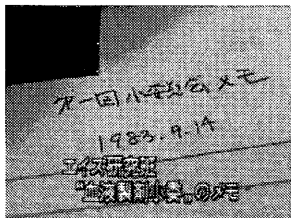 第一回小委員会メモ
1983.9.14
エイズ研究班
"血液製剤小委"のメモ